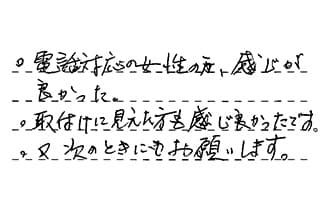 。電話対応の女性の方、感じが
良かった。
。取付けに見えた方も感じ良かったです。
。又次のときにもお願いします。